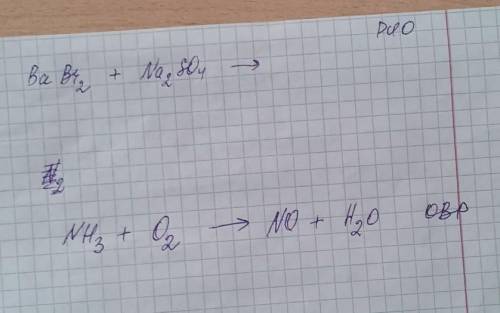 РИО
BaBr₂ + Na₂SO₄ →
№2
NH₃ + O₂ → NO + H₂O ОВР